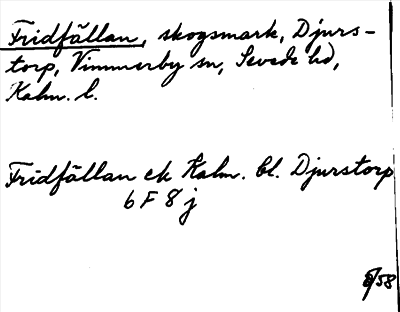 Fridfällan, skogsmark, Djurs-
torp, Vimmerby sn, Sevede hd,
Kalm. l.
Fridfällan ek Kalm. bl. Djurstorp
6 F 8 j
8/58